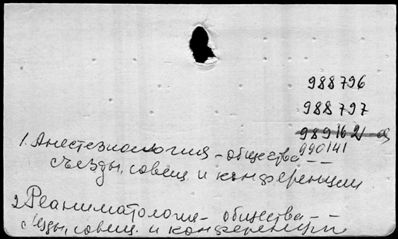 988796
988797
989162
990141
1. Анестезиология - общества --
съезды, совещ. и конференции
2. Реаниматология - общества --
съезды, совещ. и конференции